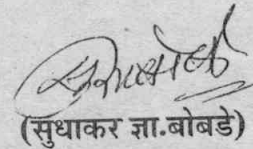 (सुधाकर ज्ञा.बोबडे)